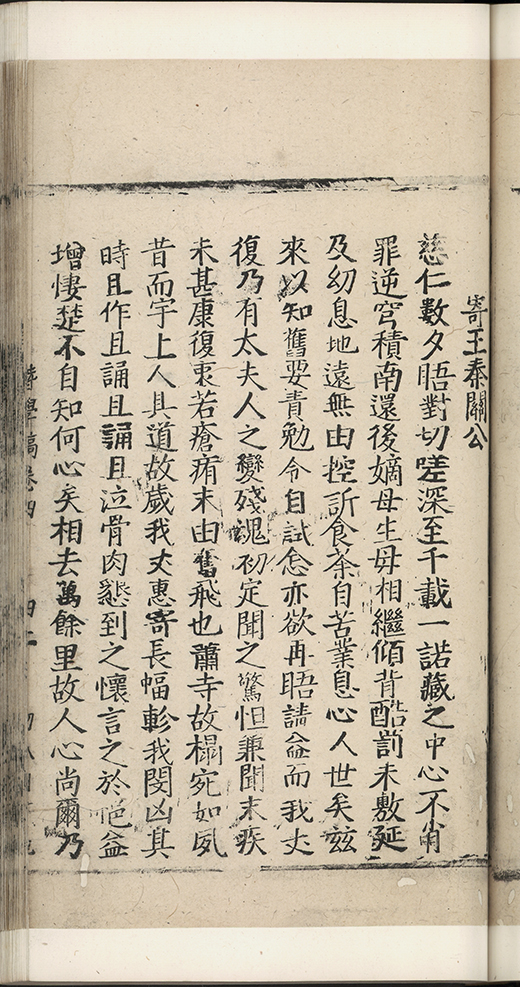 寄王秦關公
慈仁數夕晤對切嗟深至千載一諾藏之中心不肖
罪逆穹積南還後嫡母生母相繼傾背酷罰未敷延
及幼息地遠無由控訢食荼自苦業息心人世矣玆
來以知舊要責勉令自試怠亦欲再晤請益而我丈
復乃有太夫人之變殘魂初定聞之驚怛兼聞末疾
未甚康復衷若瘡痏末由奮飛也蕭寺故榻宛如夙
昔而宇上人具道故歲我丈惠寄長幅軫我閔凶其
時且作且誦且誦且泣骨肉懇到之懷言之於悒益
增悽楚不自知何心矣相去萬餘里故人心尚爾乃
學稿卷四